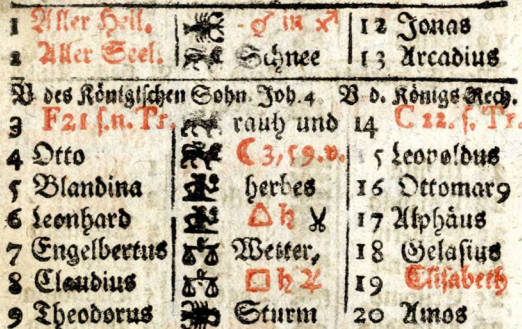 1 Aller Heil. ☌ ♂ in ♐ 12 Jonas
2 Aller Seel. Schnee 13 Arcadius
V. des Königischen Sohn. Joh. 4 V. d. Königs Rech.
3 F 21 s. n. Tr. rauh und 14 C 22. s. Tr.
4 Otto ☾ 3, 59. v. 15 Leopoldus
5 Blandina herbes 16 Ottomar9
6 Leonhard △ ♄ 17 Alphäus
7 Engelbertus Wetter, 18 Gelasius
8 Claudius □ ♄ ♃ 19 Elisabeth
9 Theodorus Sturm 20 Amos